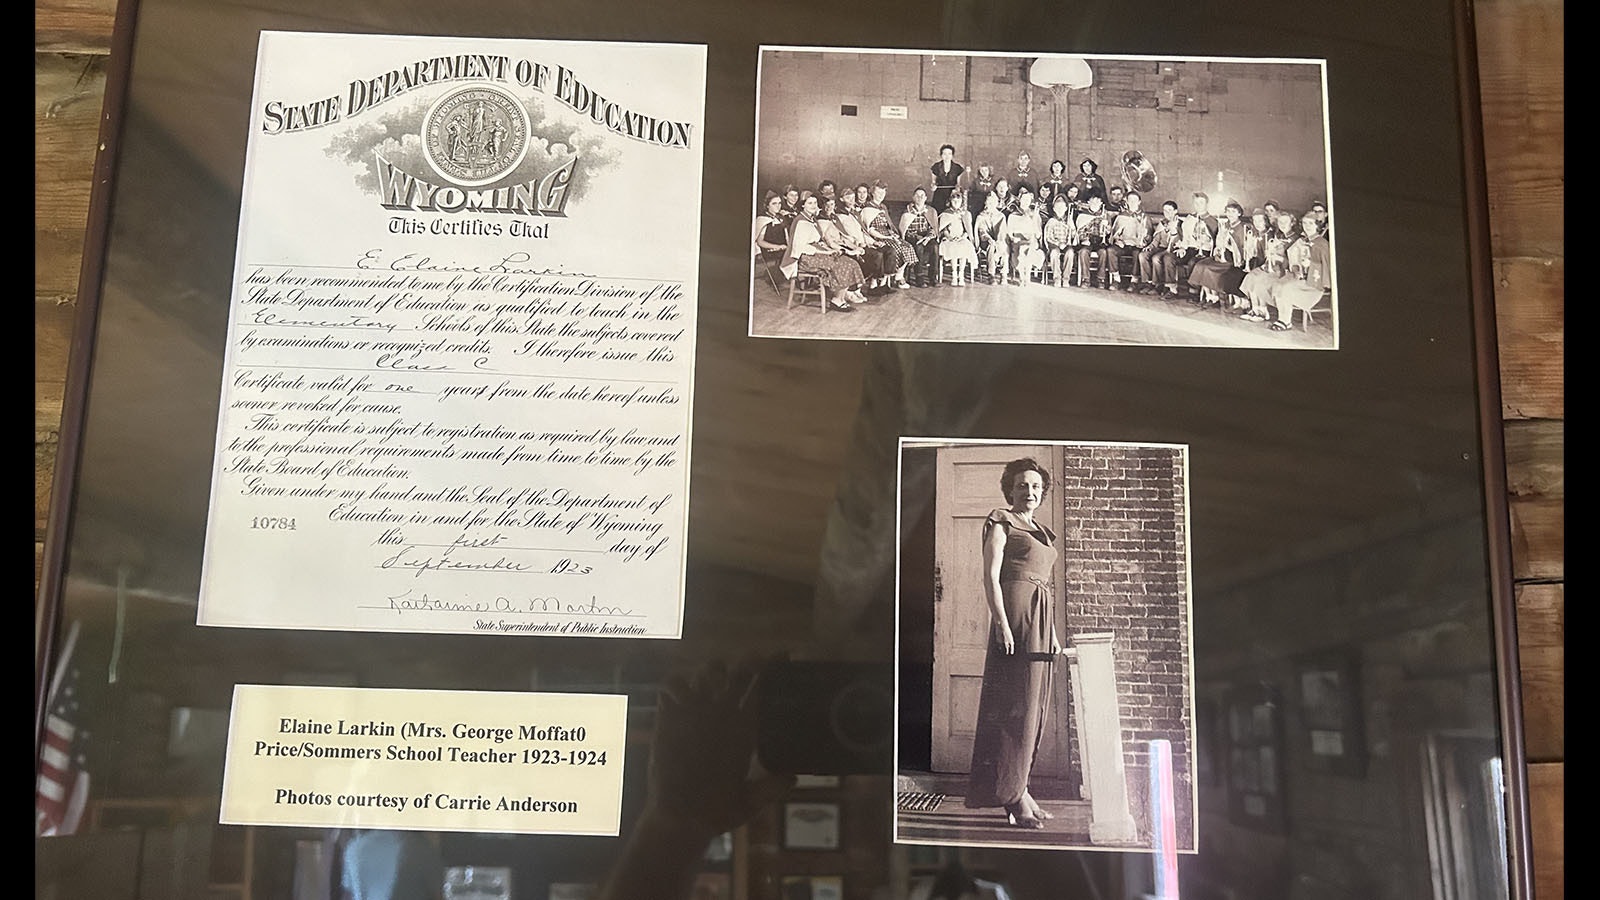 STATE DEPARTMENT OF EDUCATION
WYOMING
This Certifies That
E. Elaine Larkin
has been recommended to me by the Certification Division of the
State Department of Education as qualified to teach in the
Elementary Schools of this State the subjects covered
by examinations or recognized credits. I therefore issue this
Class C
Certificate valid for one years from the date hereof unless
sooner revoked for cause.
This certificate is subject to registration as required by law and
to the professional requirements made from time to time by the
State Board of Education.
Given under my hand and the Seal of the Department of
10784 Education in and for the State of Wyoming
this first day of
September 1923
Katharine A. Morton
State Superintendent of Public Instruction
Elaine Larkin (Mrs. George Moffat0
Price/Sommers School Teacher 1923-1924
Photos courtesy of Carrie Anderson